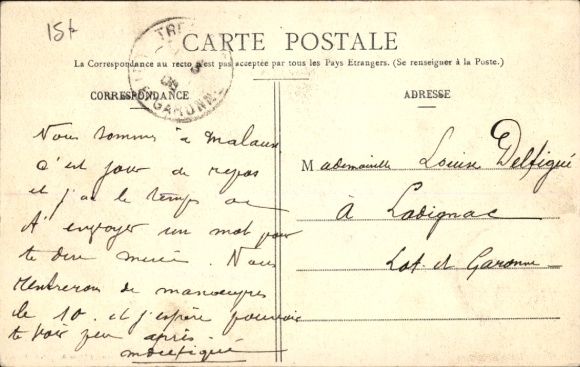 15t
CARTE POSTALE
La Correspondance au recto n'est pas acceptée par tous les Pays Etrangers. (Se renseigner à la Poste.)
CORRESPONDANCE
ADRESSE
GARONNE
Nous sommes à Malause
c'est jour de repos
et j'ai le temps de
t'envoyer un mot pour
te dire merci. Nous
rentrerons de manoeuvres
le 10. et j'espère pouvoir
te voir peu après.
Mademoiselle Louise Delfigué
à Ladignac
Lot et Garonne